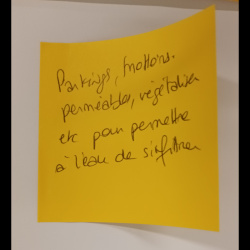 Parkings, trottoirs.
perméables, végétaliser
etc pour permettre
à l'eau de s'infiltrer